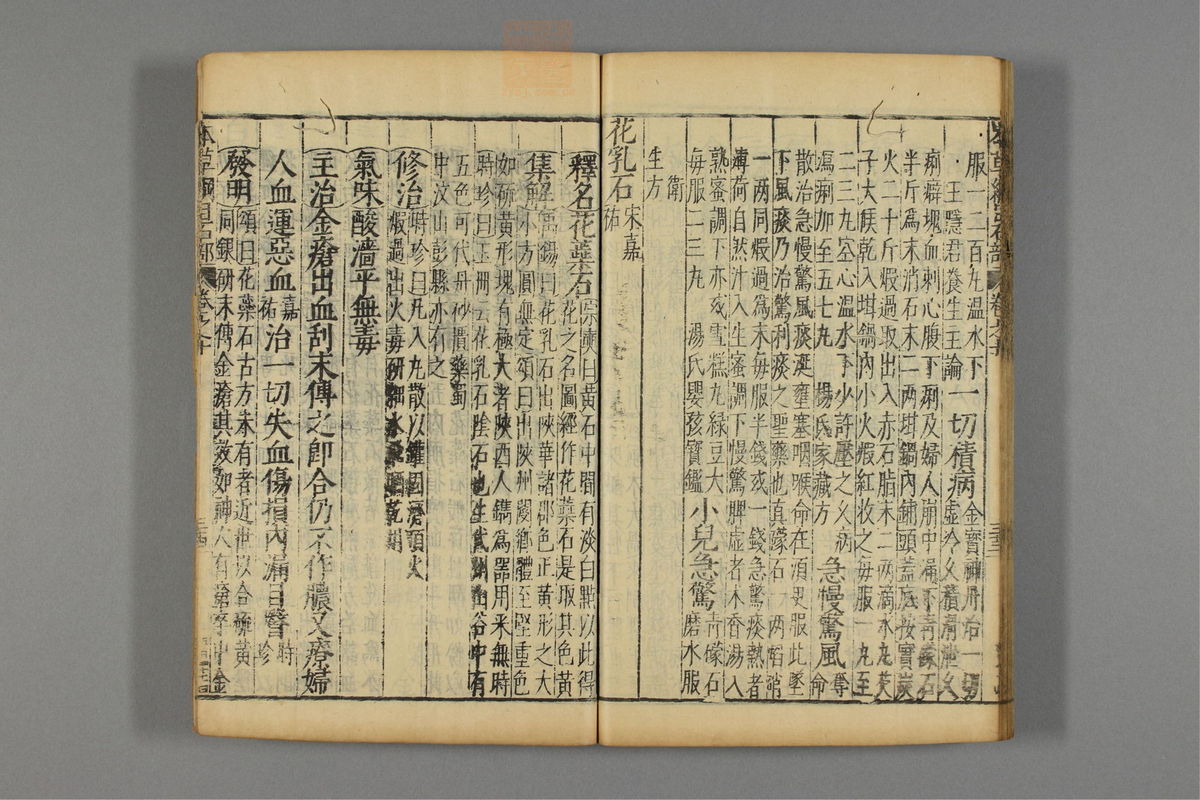 服一二百丸溫水下一切積病金寶神丹治一切
王隱君養生主論虛冷久積滑泄久
痢癖塊血刺心腹下痢及婦人崩中漏下青礞石
半斤為末消石末二兩坩鍋內鋪頭蓋底按實炭
火二十斤煅過取出入赤石脂末二兩滴水丸芡
子大候乾入坩鍋內小火煅紅收之每服一丸至
二三丸空心溫水下少許壓之久病
瀉痢加至五七丸楊氏家藏方急慢驚風奪命
散治急慢驚風痰涎壅塞咽喉命在須臾服此墜
下風痰乃治驚利痰之聖藥也真礞石一兩焰硝
一兩同煅過為末每服半錢或一錢急驚痰熱者
薄荷自然汁入生蜜調下慢驚脾虛者木香湯入
熟蜜調下亦或雪糕丸綠豆大
每服二三丸湯氏嬰孩寶鑑小兒急驚青礞石磨水服
衛
生方
花乳石宋嘉祐
釋名花蘂石宗奭曰黃石中間有淡白點以此得
花之名圖經作花蘂石是取其色黃
集解禹錫曰花乳石出陝華諸郡色正黃形之大
小方圓無定頌曰出陝州閿鄉體至堅重色
如硫黃形塊有極大者陝西人鐫為器用采無時
時珍曰玉冊云花乳石陰石也生代州山谷中有
五色可代丹砂匱藥蜀
中汶山彭縣亦有之
修治時珍曰凡入丸散以罐固濟頂火
煅過出火毒研細水飛晒乾用
氣味酸澀平無毒
主治金瘡出血刮末傅之即合仍不作膿又療婦
人血運惡血嘉祐治一切失血傷損內漏目瞖時珍
發明頌曰花蘂石古方未有者近世以合硫黃
同煅研末傅金瘡其效如神人有倉卒中金